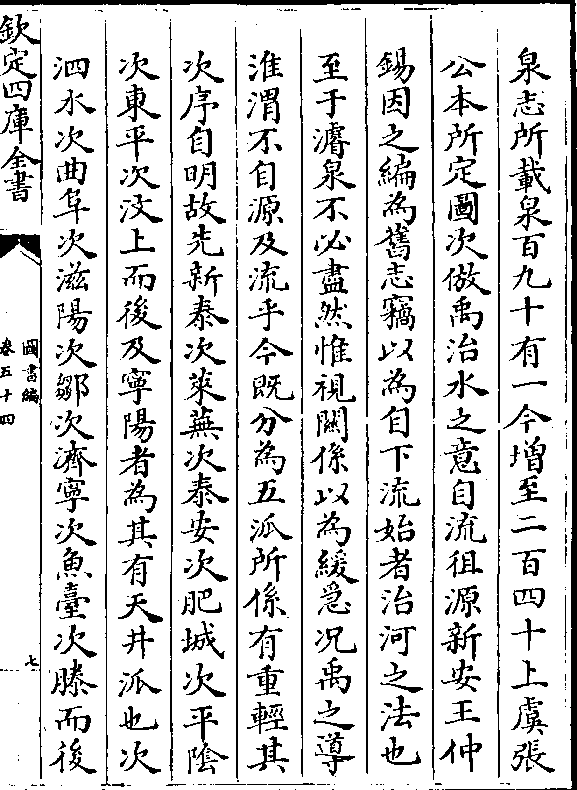 泉志所載泉百九十有一今增至二百四十上虞張
公本所定圖次倣禹治水之意自流徂源新安王仲
錫因之編為舊志竊以為自下流始者治河之法也
至于濬泉不必盡然惟視關係以為緩急况禹之導
淮渭不自源及流乎今既分為五派所係有重輕其
次序自明故先新泰次萊蕪次泰安次肥城次平陰
次東平次汶上而後及寧陽者為其有天井派也次
泗水次曲阜次滋陽次鄒次濟寧次魚臺次滕而後
欽定四庫全書
圖書編
卷五十四
七